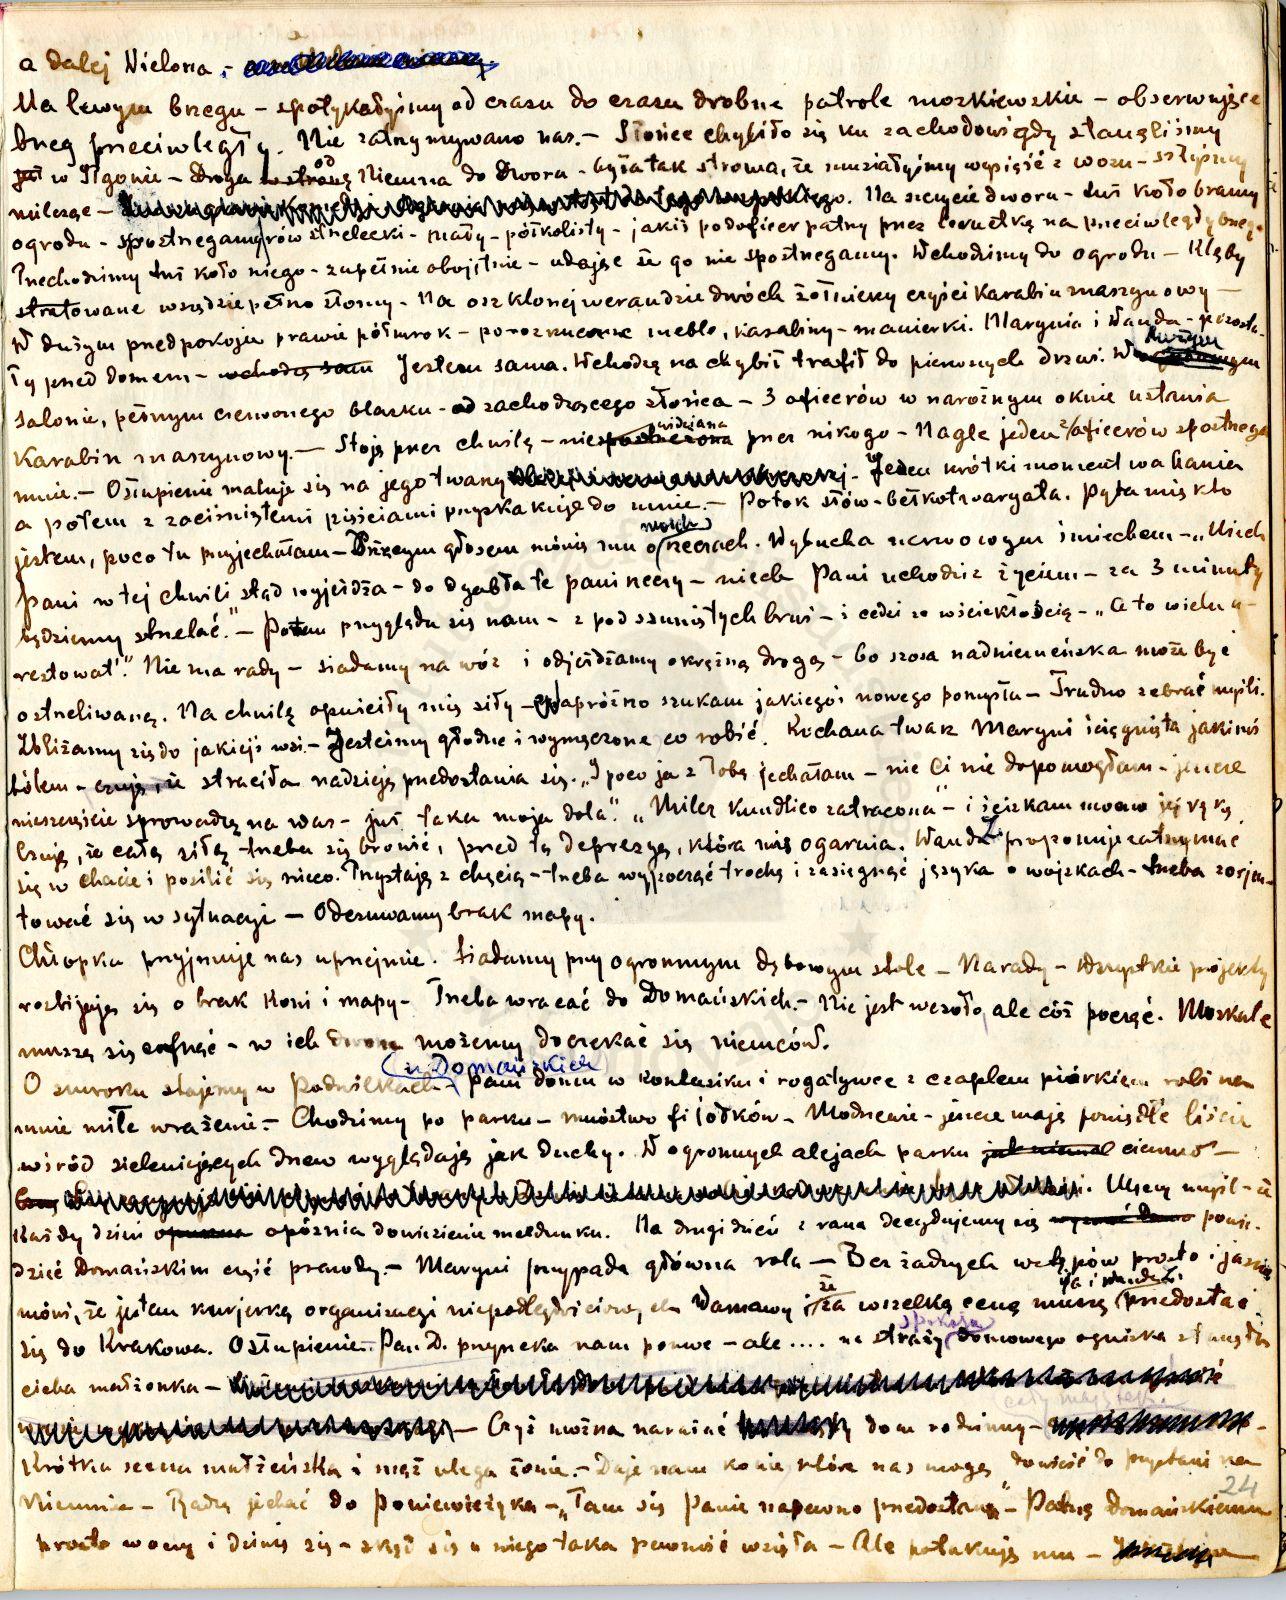 a dalej Wielona. -
Na lewym brzegu - spotykałyśmy od czasu do czasu drobne patrole moskiewskie - obserwujące
brzeg przeciwległy. Nie zatrzymywano nas. - Słońce chyliło się ku zachodowi gdy stanęliśmy
już w Ilgowie - Droga w stronę od Niemna do dworu - była tak stroma, że musiałyśmy wysiąść z wozu - szłyśmy
milcząc - Na szczycie dworu - tuż koło bramy
ogrodu - spostrzegamy rów strzelecki - mały - półkolisty - jakiś podoficer patrzy przez lornetkę na przeciwległy brzeg.
Przechodzimy tuż koło niego - zupełnie obojętnie - udając że go nie spostrzegamy. Wchodzimy do ogrodu - Klęby
stratowane wszędzie pełno słomy. Na oszklonej werandzie dwóch żołnierzy czyści karabin maszynowy -
W dużym przedpokoju prawie półmrok - porozrzucane meble, karabiny - manierki. Marynia i Wanda - pozosta-
ły przed domem - wchodzę sam Jestem sama. Wchodzę na chybił trafił do pierwszych drzwi. W dużym
salonie, pełnym czerwonego blasku - od zachodzącego słońca - 3 oficerów w narożnym oknie ustawia
karabin maszynowy. - Stoję przez chwilę - nie spostrzeżona widziana przez nikogo - Nagle jeden z oficerów spostrzega
mnie. - Osłupienie maluje się na jego twarzy Jeden krótki moment wahania
a potem z zaciśniętemi pięściami przyskakuje do mnie. - Potok słów - bełkot waryata. Pyta mię kto
jestem, poco tu przyjechałam - Drżącym głosem mówię mu o moich rzeczach. Wybucha nerwowym śmiechem - „Niech
pani w tej chwili stąd wyjeżdża - do dyabła te pani rzeczy - niech Pani uchodzi z życiem - za 3 minuty
będziemy strzelać." - Potem przygląda się nam - z pod zsuniętych brwi - i cedzi ze wściekłością - „A to wielu a-
restował." Nie ma rady - siadamy na wóz i odjeżdżamy okrężną drogą - bo szosa nadniemeńska może być
ostrzeliwaną. Na chwilę opuściły mię siły - napróżno szukam jakiegoś nowego pomysłu - Trudno zebrać myśli.
Zbliżamy się do jakiejś wsi. - Jesteśmy głodne i wymęczone co robić. Kochana twarz Maryni ściągnięta jakimś
bólem - czuję, że straciła nadzieję przedostania się. „I poco ja z Tobą jechałam - nic Ci nie dopomogłam - jeszcze
nieszczęście sprowadzę na was - już taka moja dola". „Milcz Kundlico zatracona" - i ściskam mocno jej rękę
Czuję, że całą siłą trzeba się bronić, przed tą depresyą, która mię ogarnia. Wanda Z. proponuje zatrzymać
się w chacie i posilić się nieco. Przystaję z chęcią - trzeba wypocząć trochę i zasięgnąć języka o wojskach - trzeba zorjen-
tować się w sytuacji - Odczuwamy brak mapy.
Chłopka przyjmuje nas uprzejmie. Siadamy przy ogromnym dębowym stole - Narady - wszystkie projekty
rozbijają się o brak koni i mapy - Trzeba wracać do Domańskich. - Nie jest wesoło, ale cóż począć. Moskale
muszą się cofnąć - w ich dworze możemy doczekać się niemców.
O zmroku stajemy w Poduśilkach (u Domańskich) Pani domu w kontusiku i rogatywce z czaplem piórkiem robi na
mnie miłe wrażenie - Chodzimy po parku - mnóstwo fijołków - Modrzewie - jeszcze mają pożółkłe liście
wśród zieleniejących drzew wyglądają jak duchy. W ogromnych alejach parku ciemno -
Męczy myśl - że
każdy dzień opóźnia dowiezienie meldunku. Na drugi dzień z rana decydujemy się powie-
dzieć Domańskim część prawdy. - Maryni przypada główna rola - Bez żadnych wstępów prosto i jasno
mówi, że jestem kurjerką organizacji niepodległościowej z Warszawy i że za wszelką cenę muszę ja i Wanda Z. przedostać
się do Krakowa. Osłupienie - Pan D. przyrzeka nam pomoc - ale .... na straży spokoju domowego ogniska stanęła
cicha małżonka -
- Czyż można narażać dom rodzinny -
Krótka scena małżeńska i mąż ulega żonie. - Daje nam konie, które nas mogą dowieść do przystani na
24
Niemnie - Radzą jechać do Poniewieżyka - „Tam się Panie napewno przedostaną" - Patrzę Domańskiemu
prosto w oczy i dziwię się - skąd się u niego taka pewność wzięła - Ale potakuję mu -